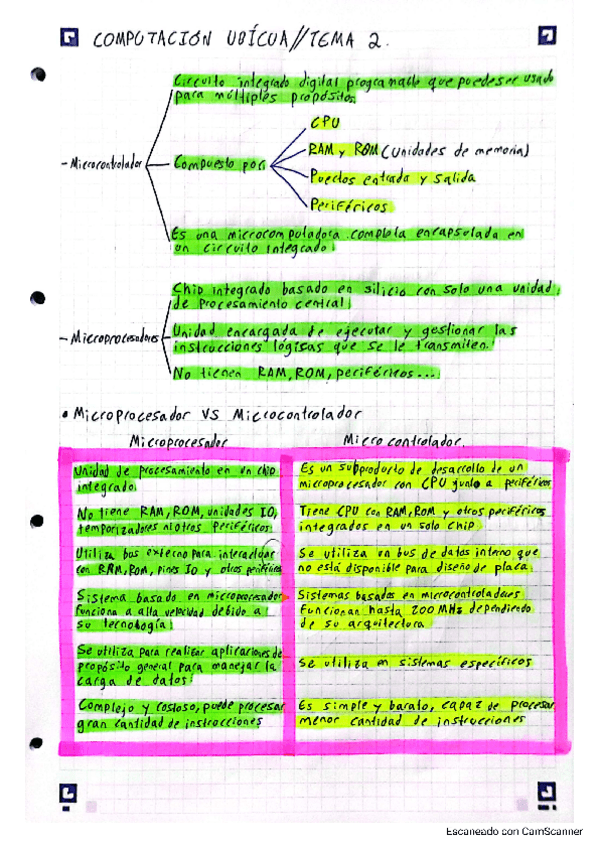 COMPUTACIÓN UBÍCUA//TEMA 2.
Circuito integrado digital programable que puede ser usado
para múltiples propósitos.
-Microcontrolador
Compuesto por:
CPU
RAM y ROM (unidades de memoria)
Puertos entrada y salida
Periféricos
Es una microcomputadora completa encapsulada en
un circuito integrado.
Chip integrado basado en silicio con solo una unidad
de procesamiento central.
-Microprocesadores
Unidad encargada de ejecutar y gestionar las
instrucciones lógicas que se le transmiten.
No tienen RAM, ROM, periféricos....
• Microprocesador VS Microcontrolador
Microprocesador
Microcontrolador.
Unidad de procesamiento en un chip
integrado.
Es un subproducto de desarrollo de un
microprocesador con CPU junto a periféricos
No tiene RAM, ROM, unidades IO,
temporizadores ni otros periféricos.
Tiene CPU con RAM, ROM y otros periféricos
integrados en un solo chip.
Utiliza bus externo para interactuar
con RAM, ROM, pines IO y otros periféricos
Se utiliza en bus de datos interno que
no está disponible para diseño de placa.
Sistema basado en microprocesador
funciona a alta velocidad debido a
su tecnología.
Sistemas basados en microcontroladores
funcionan hasta 200MHz dependiendo
de su arquitectura
Se utiliza para realizar aplicaciones de
propósito general para manejar la
carga de datos.
Se utiliza en sistemas específicos
Complejo y costoso, puede procesar
gran cantidad de instrucciones
Es simple y barato, capaz de procesar
menor cantidad de instrucciones
Escaneado con CamScanner